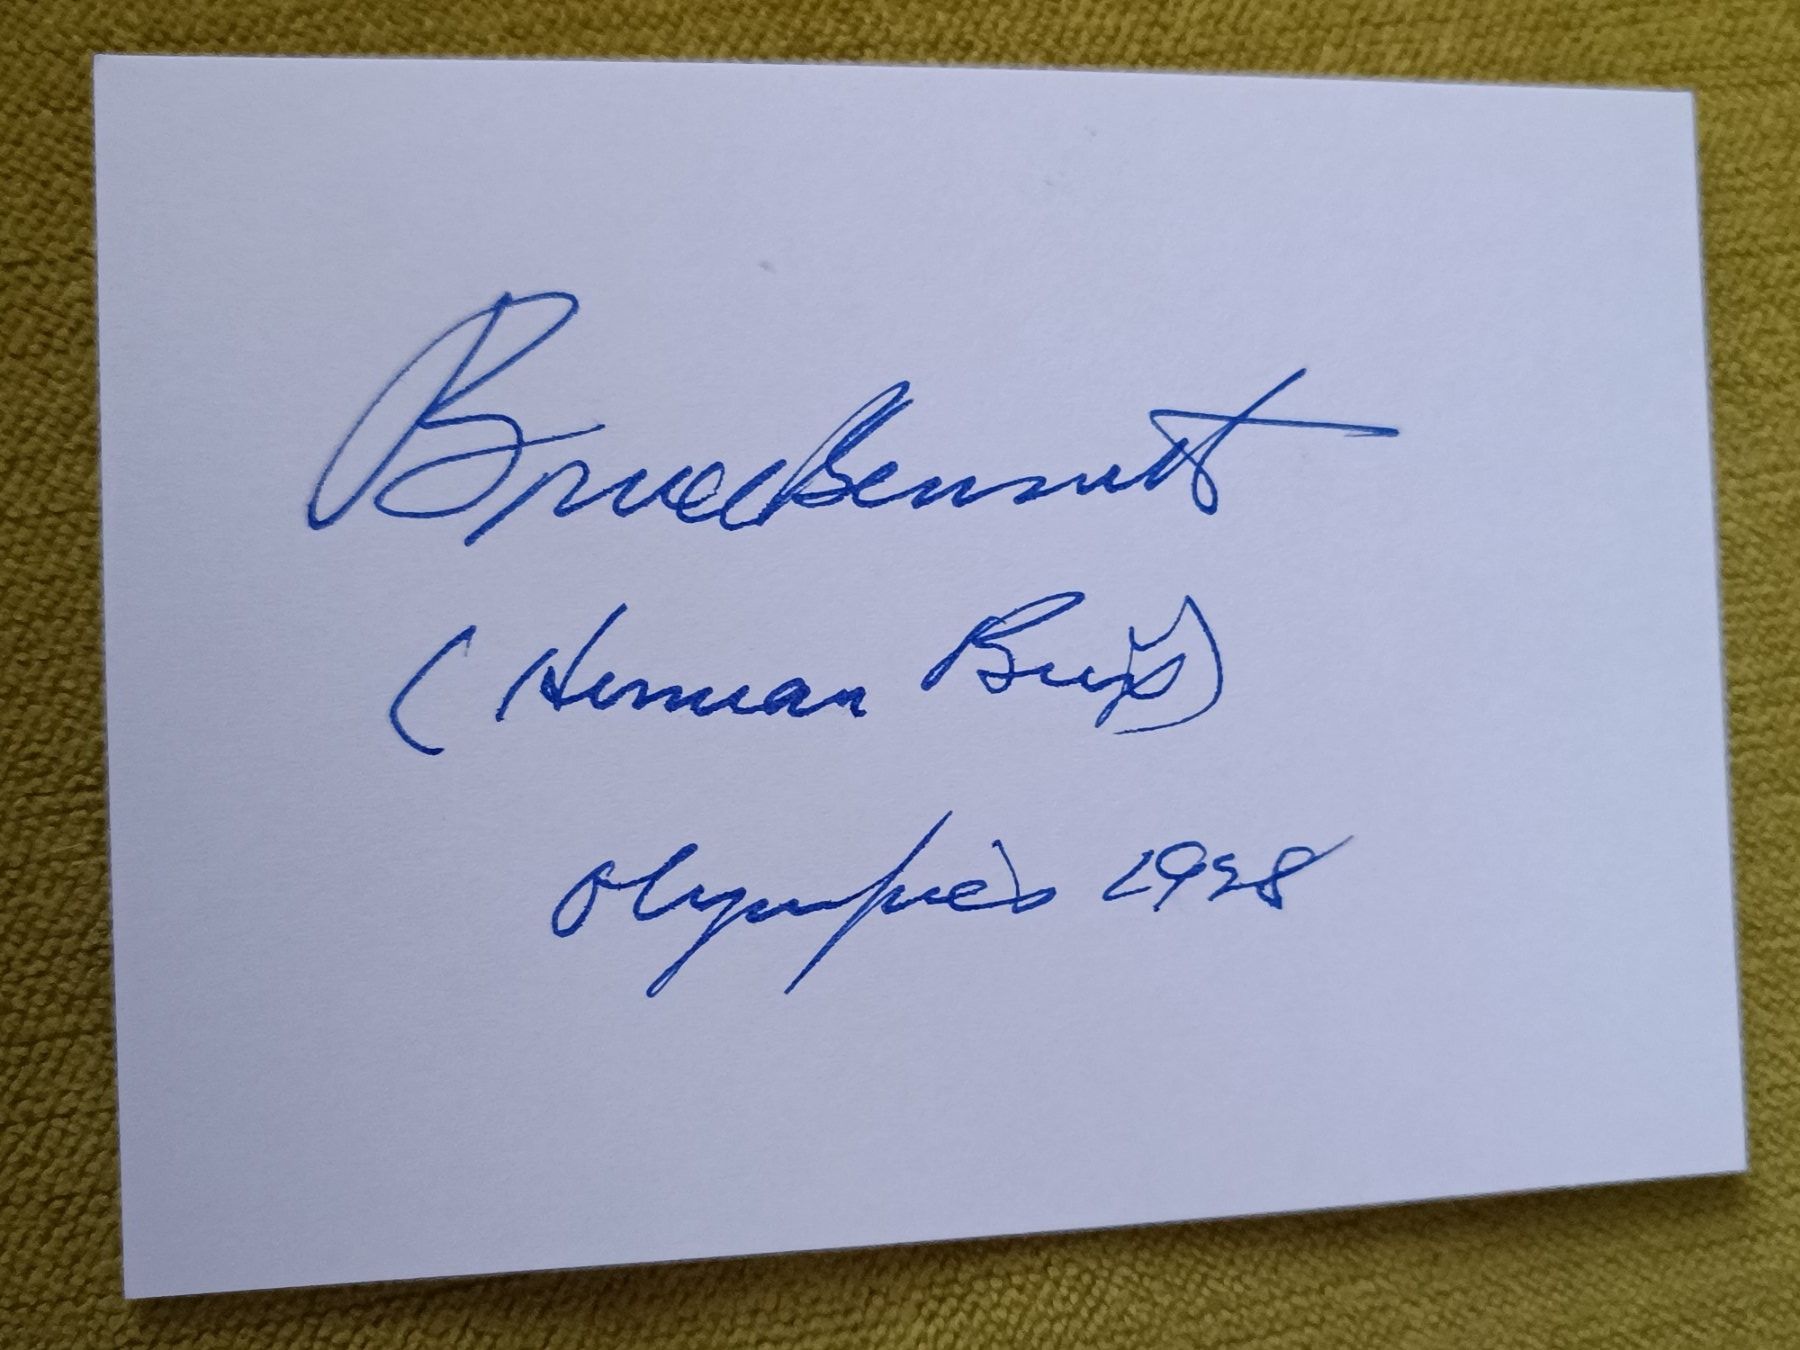 Bruce Bennett
(Herman Brix)
Olympics 1928